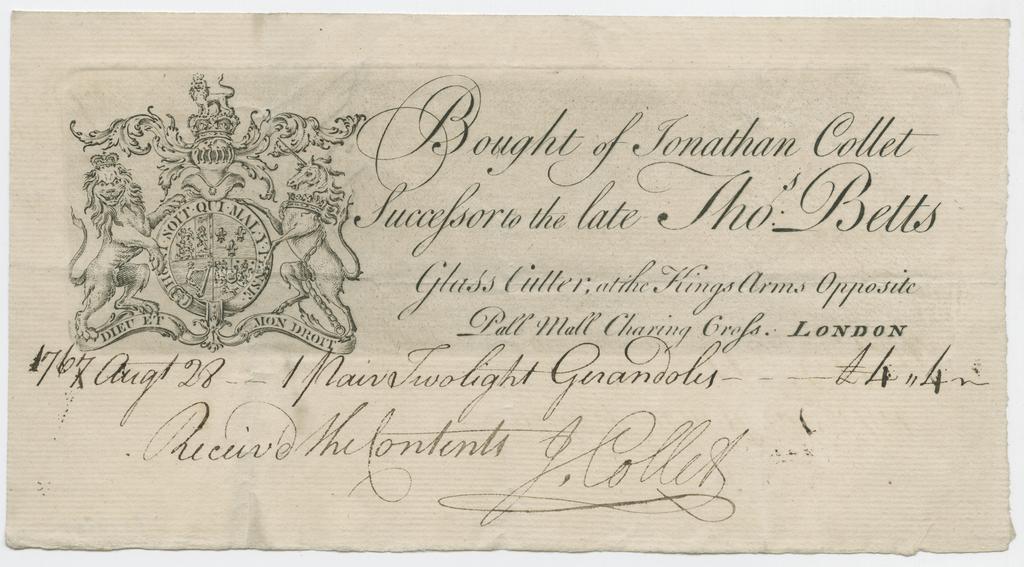 HONI·SOIT·QUI·MAL·Y·PENSE
DIEU ET MON DROIT
Bought of Jonathan Collet
Succeſsor to the late Thoˢ: Betts
Glaſs Cutter, at the Kings Arms Opposite
Pall Mall Charing Croſs. LONDON
1767 Augt 28 -- 1 pair Twolight Gerandoles - - - £4 „ 4 „
Receiv'd the Contents J. Collet